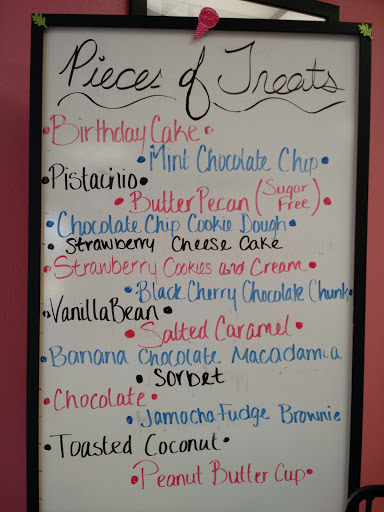 Pieces of Treats
•Birthday Cake•
•Mint Chocolate Chip•
•Pistachio•
•Butter Pecan (Sugar Free)•
•Chocolate Chip Cookie Dough•
• Strawberry Cheese Cake
•Strawberry Cookies and Cream•
•Black Cherry Chocolate Chunk•
•Vanilla Bean•
•Salted Caramel•
•Banana Chocolate Macadamia
•Sorbet
•Chocolate•
•Jamocha Fudge Brownie
•Toasted Coconut•
•Peanut Butter Cup•